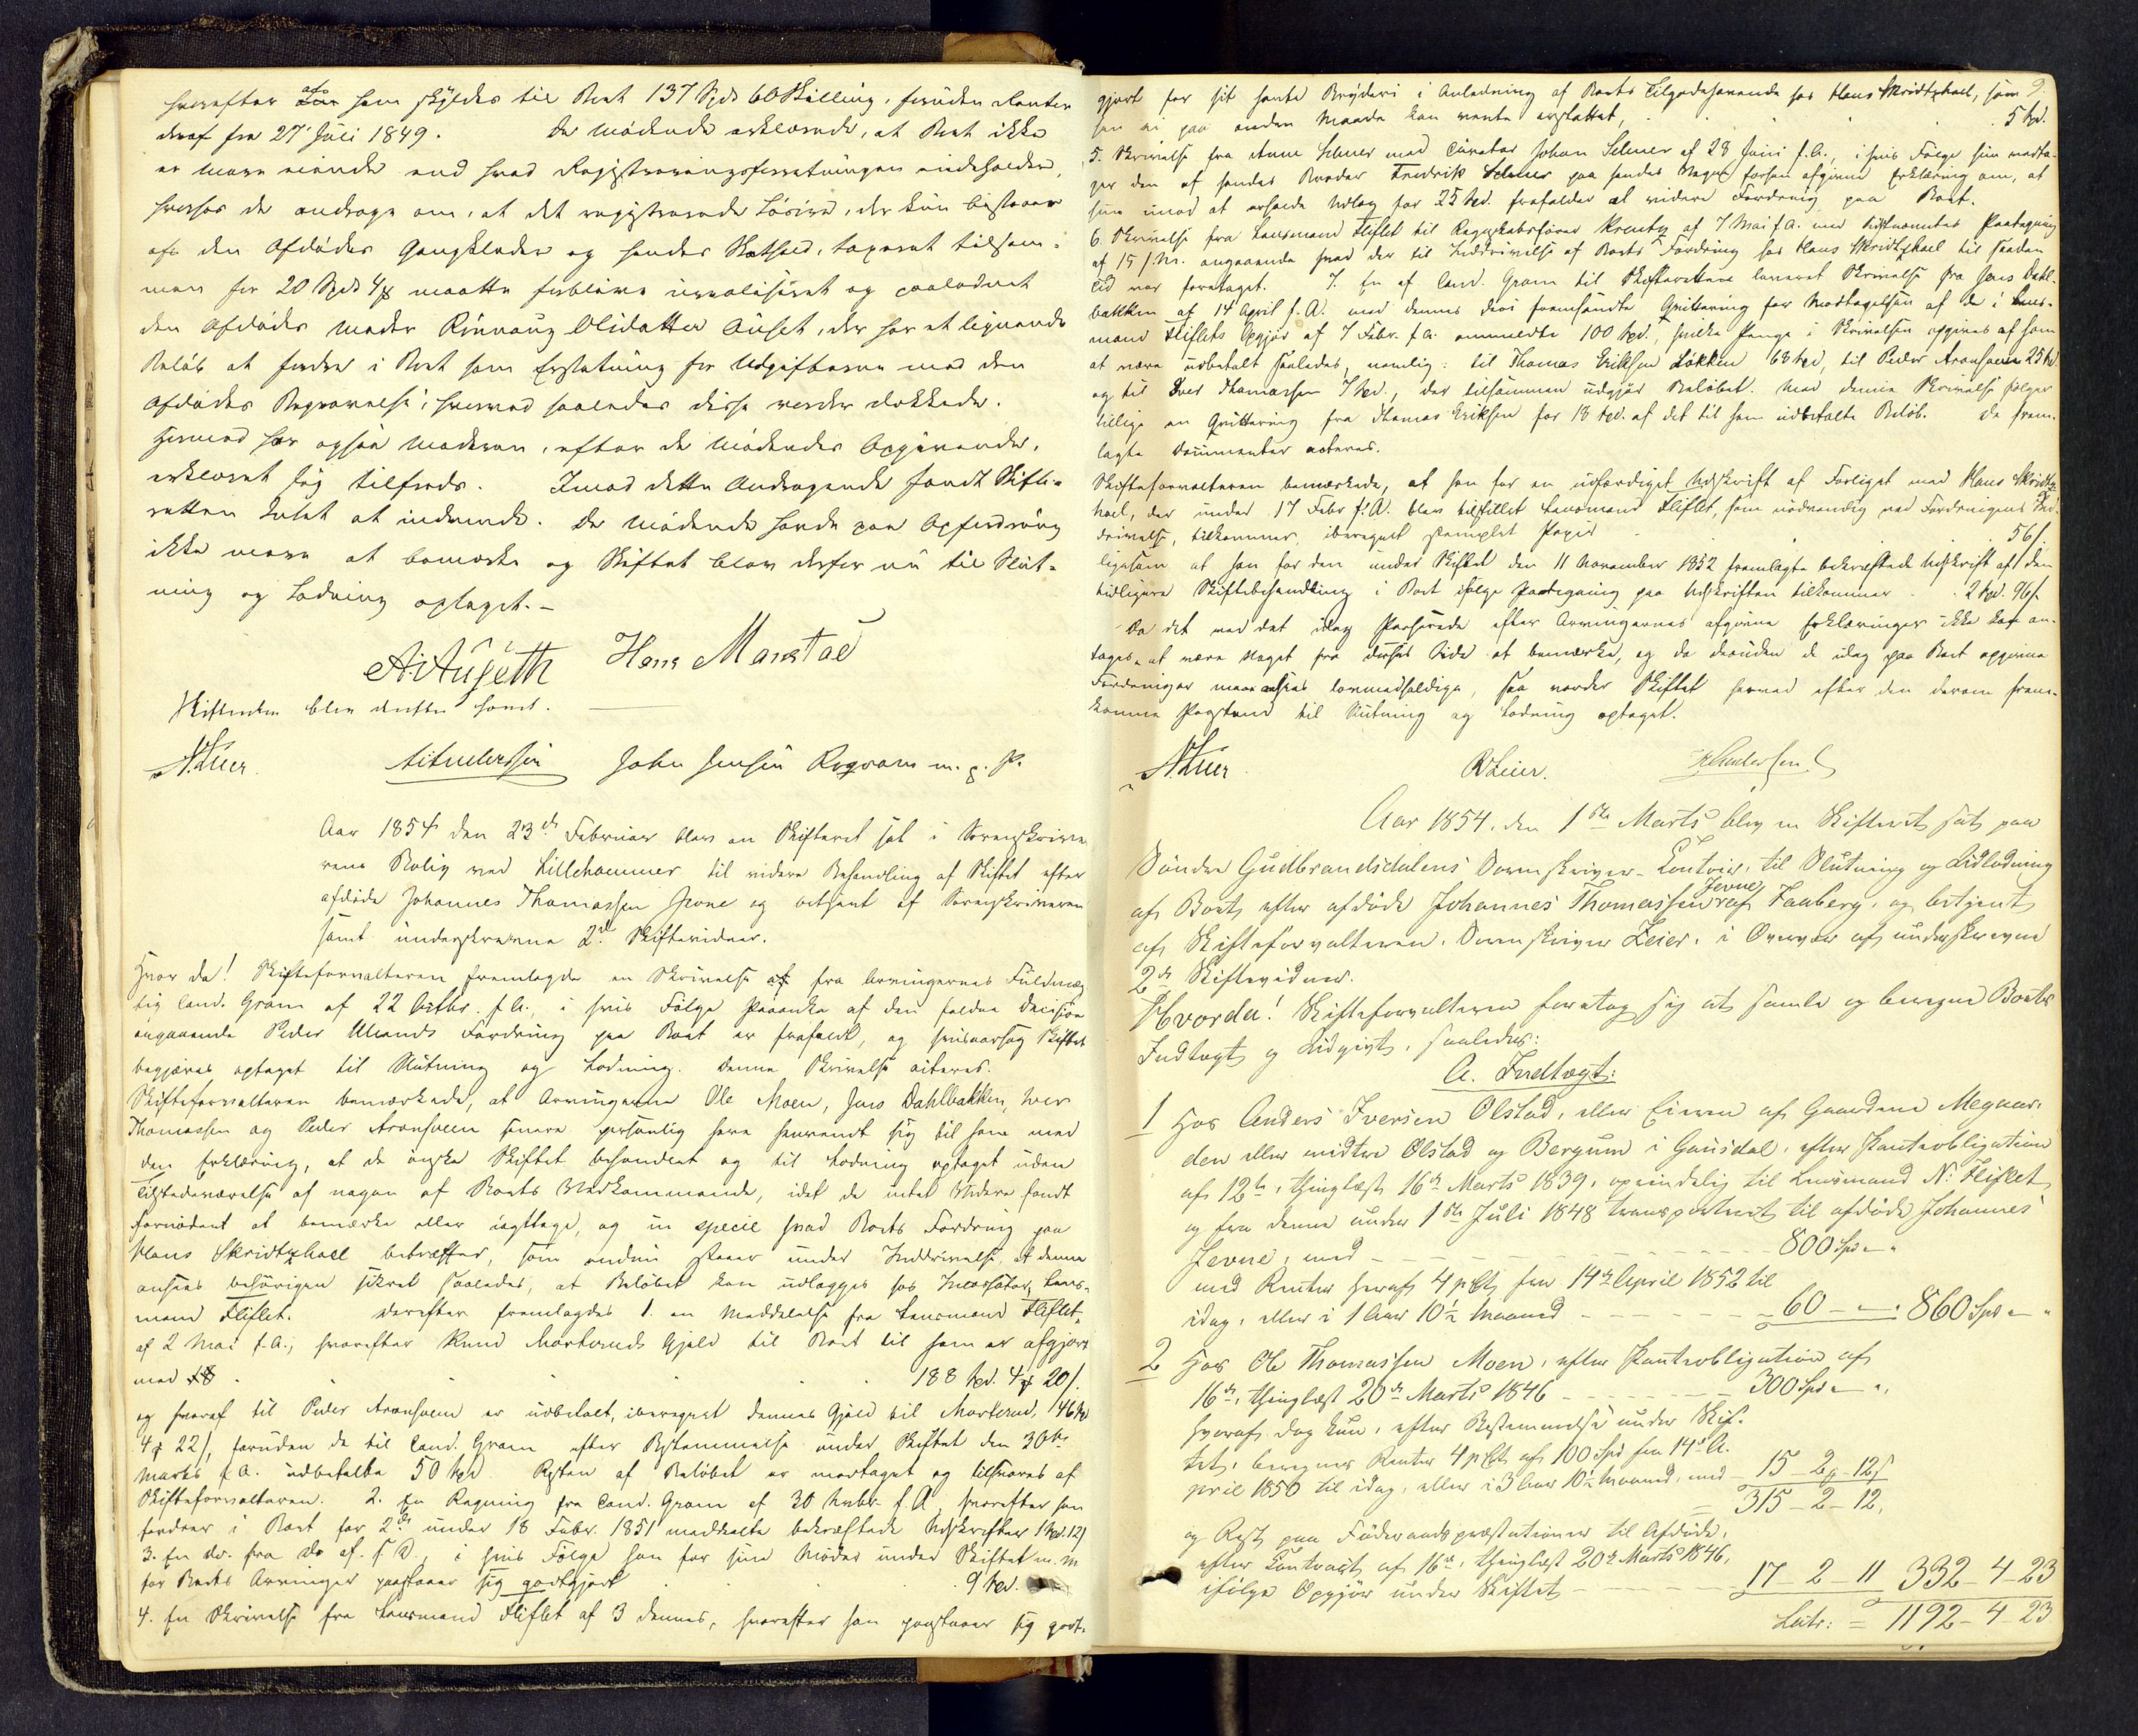 hvorefter han skylder til Boet 137 Spd 60 Skilling, foruden Renter
deraf fra 27 Juli 1849. De mødende erklærede, at Boet ikke
er mere eiende end hvad Registreringsforretningen indeholder,
hvorfor de androge om, at det registrerede Løsøre, der kun bestaaer
af den Afdødes Gangklæder og hendes tilsam-
men for 20 Spd 4 maatte forblive urealiseret og
den Afdødes Moder Rønnaug Olsdatter Auset, der har et lignende
Beløb at fordre i Boet som Erstatning for Udgifterne med den
Afdødes Begravelse, hvorved saaledes disse vorder dækkede.
Hermed har ogsaa Moderen, efter de Mødendes Opgivende,
erklæret sig tilfreds. Imod dette Andragende fandt Skifte-
retten Intet at indvende. De Mødende havde paa Opfordring
ikke mere at bemærke og Skiftet blev derfor nu til Slut-
ning og Lodning optaget.–
Hans Manstad
Skifteretten blev derefter hævet.
John Jensen Rogram m. p. P.
Aar 1854 den 23de Februar blev en Skifteret sat i Sorenskrive-
rens Bolig ved Lillehammer til videre Behandling af Skiftet efter
afdøde Johannes Thomassen Jevne og betjent af Sorenskriveren
samt underskrevne 2de Skiftevidner.
Hvor da! Skifteforvalteren fremlagde en Skrivelse af fra Arvingernes Fuldmæg
tig Cand. Gram af 22 Octbr. f. A., i hvis Følge Paaanke af den faldne Decision
angaaende Peder Ulands Fordring paa Boet er frafaldt, og hvisaarsag Skiftet
begjæres optaget til Slutning og Lodning. Denne Skrivelse acteres.
Skifteforvalteren bemærkede, at Arvingerne Ole Moen, Jens Dahlbakken, Iver
Thomassen og Peder Aronsveen senere personlig have henvendt sig til ham med
den Erklæring, at de ønske Skiftet behandlet og til Lodning optaget uden
Tilstedeværelse af nogen af Boets Vedkommende, idet de intet Videre fandt
fornødent at bemærke eller iagttage, og in specie hvad Boets Fordring paa
Hans Skridtshoel betræffer, som endnu staaer under Inddrivelse, at denne
ansees behørigen sikret saaledes, at Beløbet kan udlægges hos Incassator, Lens-
mand Fliflet. Derefter fremlagdes 1. en Meddelelse fra Lensmand Fliflet
af 2 Mai f. A., hvorefter Knud Morteruds Gjæld til Boet til ham er afgjort
med 188 Spd. 4 20/.
og hvoraf til Peder Aronsveen er udbetalt, iberegnet dennes Gjæld til Morterud, 146
4 22/, foruden de til Cand. Gram efter Bestemmelse under Skiftet den 30te
Marts f. A. udbetalte 50 Spd. Resten af Beløbet er modtaget og tilsvares af
Skifteforvalteren. 2. En Regning fra Cand. Gram af 30 Novbr. f. A., hvorefter han
fordrer i Boet for 2de under 18 Febr. 1851 meddeelte bekræftede Udskrifter 1 Spd. 12/
3. En do. fra do af f. D., i hvis Følge han for sine Møder under Skiftet m. m
for Boets Arvinger paastaaer sig godtgjort 9 Spd.
4. En Skrivelse fra Lensmand Fliflet af 3 dennes, hvorefter han paastaaer sig godt-
9.
gjort for sit havte Bryderi i Anledning af Boets Tilgodehavende hos Hans Skridtshoel, som
han ei paa anden Maade kan vente erstattet, 5 Spd.
5. Skrivelse fra Anne Selmer med Curator Johan Selmer af 28 Juni f. A., i hvis Følge hun vedta-
ger den af hendes Broder Fredrik Selmer paa hendes Vegne forhen afgivne Erklæring om, at
hun imod at erholde Udlæg for 25 Spd. frafalder al videre Fordring paa Boet.
6. Skrivelse fra Lensmand Fliflet til Regnskabsfører Krentz af 7 Mai f. A. med Sidstnævntes Paategning
af 15 s. M. angaaende hvad der til Inddrivelse af Boets Fordring hos Hans Skridtshoel til saaden
tid var foretaget. 7. En af Cand. Gram til Skifteretten leveret Skrivelse fra Jens Dahl-
bakken af 14 April f. A. med dennes deri fremsendte Qvittering for Modtagelsen af de i Lens-
mand Fliflets Opgjør af 7 Febr. f. A. ommeldte 100 Spd., hvilke Penge i Skrivelsen opgives af ham
at være udbetalt saaledes, nemlig: til Thomas Eriksen Løkken 68 Spd, til Peder Aronsveen 25
og til Iver Thomassen 7 Spd., der tilsammen udgjør Beløbet. Med denne Skrivelse følger
tillige en Qvittering fra Thomas Eriksen for 18 Spd. af det til ham udbetalte Beløb. De frem-
lagte Documenter acteres.
Skifteforvalteren bemærkede, at han for en udfærdiget Udskrift af Forliget med Hans Skridts-
hoel, der under 17 Febr f. A. blev tilstillet Lensmand Fliflet, som nødvendig ved Fordringens Ind-
drivelse, tilkommer, iberegnet stemplet Papir 56/.
ligesom at han for den under Skiftet den 11 November 1852 fremlagte bekræftede Udskrift af den
tidligere Skiftebehandling i Boet ifølge Paategning paa Udskriften tilkommer 2 Spd. 96/.
Da det ved det idag Passerede efter Arvingernes afgivne Erklæringer ikke kan an-
tages at være Noget fra deres Side at bemærke, og da desuden de idag paa Boet opgivne
Fordringer maa ansees lovmedholdige, saa vorder Skiftet herved efter den derom frem-
komne Paastand til Slutning og Lodning optaget.
Aar 1854, den 1ste Marts blev en Skifteret sat paa
Søndre Gudbrandsdalens Sorenskriver-Contoir, til Slutning og Udlodning
af Boet efter afdøde Johannes Thomassen Jevne af Faaberg, og betjent
af Skifteforvalteren, Sorenskriver Leier, i Overvær af underskrevne
2de Skiftevidner.
Hvorda! Skifteforvalteren foretog sig at samle og beregne Boets
Indtægt og Udgivt, saaledes:
A. Indtægt:
1 Hos Anders Iversen Olstad, eller Eieren af Gaardene Megaar-
den eller midtre Olstad og Bergum i Gausdal, efter Pantobligation
af 12te, thinglæst 16de Marts 1839, oprindelig til Lensmand N. Fliflet
og fra denne under 1ste Juli 1848 transporteret til afdøde Johannes
Jevne, med 800 Spd " "
med Renter heraf 4 pCt fra 14de April 1852 til
idag, eller i 1 Aar 10½ Maaned 60 – " – " 860 Spd " – "
2 Hos Ole Thomassen Moen, efter Pantobligation af
16de, thinglæst 20de Marts 1846 300 Spd " – ".
hvoraf dog kun, efter Bestemmelse under Skif-
tet, beregnes Renter 4 pCt af 100 Spd fra 14de A-
pril 1850 til idag, eller i 3 Aar 10½ Maaned, med 15 – 2 – 12/
= 315 – 2 – 12.
og Rest paa Føderaadspræstationer til Afdøde,
efter Contract af 16de, thinglæst 20de Marts 1846,
ifølge Opgjør under Skiftet 17 2 – 11 332 – 4 – 23
Latr: = 1192 – 4 – 23